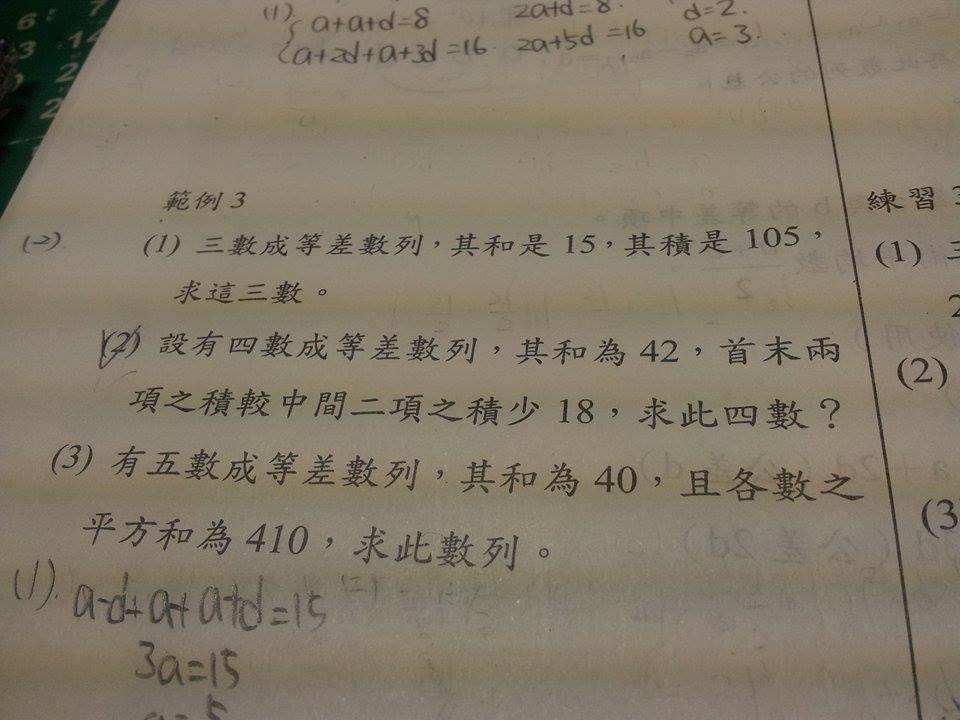 (1) a+a+d=8 2a+d=8. d=2.
a+2d+a+3d=16 2a+5d=16 a=3.
範例 3
(2).
(1) 三數成等差數列，其和是 15，其積是 105，
求這三數。
(2) 設有四數成等差數列，其和為 42，首末兩
項之積較中間二項之積少 18，求此四數？
(3) 有五數成等差數列，其和為 40，且各數之
平方和為 410，求此數列。
(1). a-d+a+a+d=15
3a=15
a=5
練習 3
(1) 三
2
(2)
(3